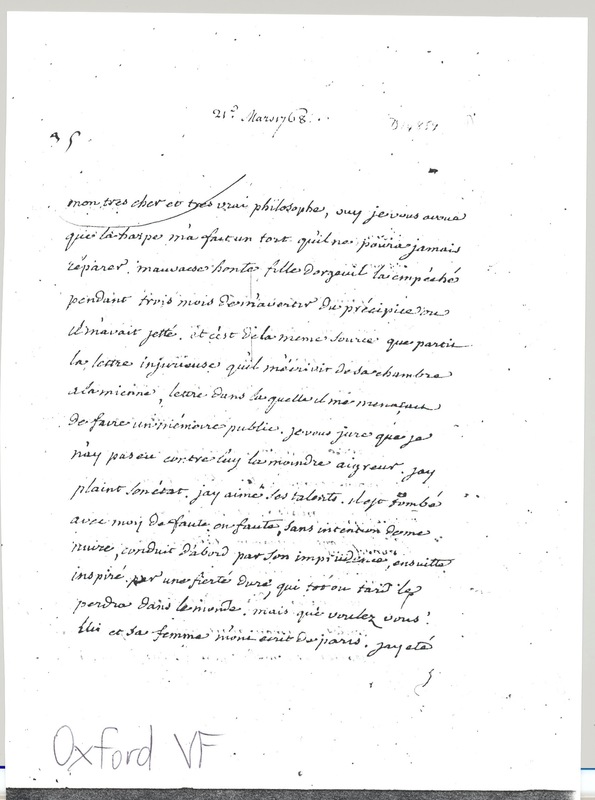 21e Mars 1768.
35
mon tres cher et tres vrai philosophe, ouy je vous avoue
que la harpe m'a fait un tort qu'il ne poura jamais
réparer. mauvaise honte fille d'orgeuil l'a empéché
pendant trois mois de m'avertir du précipice ou
il m'avait jetté. et c'est de la meme source que partit
la lettre injurieuse qu'il m'écrivit de sa chambre
a la mienne, lettre dans la quelle il me menaçait
de faire un mémoire public. je vous jure que je
n'ay pas eu contre luy la moindre aigreur. jay
plaint son état. jay aimé ses talents. il est tombé
avec moy de faute en faute, sans intention de me
nuire, conduit d'abord par son imprudence, ensuitte
inspiré par une fierté dure, qui tot ou tard le
perdra dans le monde. mais que voulez vous?
lui et sa femme m'ont écrit de paris. jay eté
Oxford VF